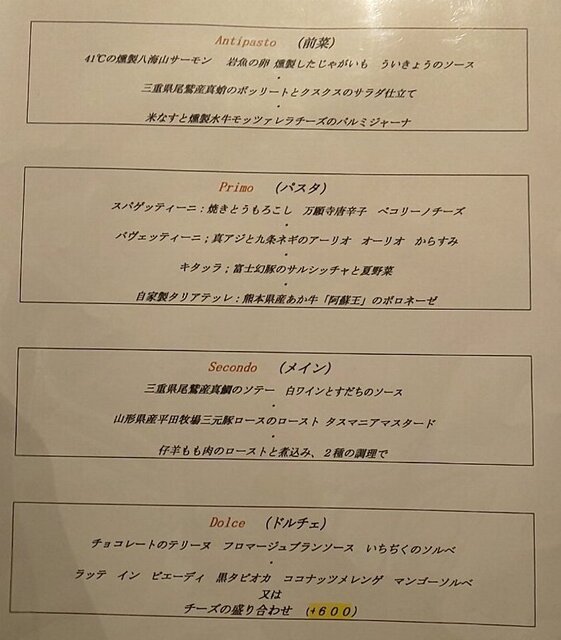 Antipasto （前菜）
41℃の燻製八海山サーモン　岩魚の卵 燻製したじゃがいも　ういきょうのソース
・
三重県尾鷲産真蛸のボッリートとクスクスのサラダ仕立て
・
米なすと燻製水牛モッツァレラチーズのパルミジャーナ
Primo （パスタ）
スパゲッティーニ：焼きとうもろこし　万願寺唐辛子　ペコリーノチーズ
・
バヴェッティーニ；真アジと九条ネギのアーリオ　オーリオ　からすみ
・
キタッラ；富士幻豚のサルシッチャと夏野菜
・
自家製タリアテッレ：熊本県産あか牛「阿蘇王」のボロネーゼ
Secondo （メイン）
三重県尾鷲産真鯛のソテー　白ワインとすだちのソース
・
山形県産平田牧場三元豚ロースのロースト タスマニアマスタード
・
仔羊もも肉のローストと煮込み、２種の調理で
Dolce （ドルチェ）
チョコレートのテリーヌ　フロマージュブランソース　いちぢくのソルベ
・
ラッテ　イン　ピエーディ　黒タピオカ　ココナッツメレンゲ　マンゴーソルベ
又は
チーズの盛り合わせ　(+６００)